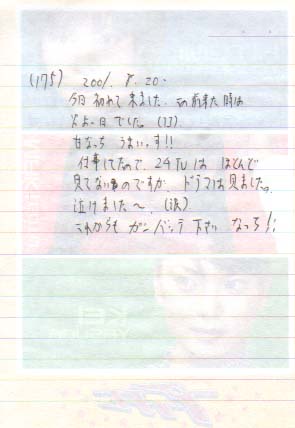 (175) 2001. 8. 20.
今日 初めて 来ました. この前来た 時は
休みの日 でした. (汗)
甘なっち うまいっす!!
仕事してたので、24TVは ほとんど
見てないものですが、ドラマは 見ました。
泣けました〜. (涙)
これからも ガンバッテ 下さい なっち!!